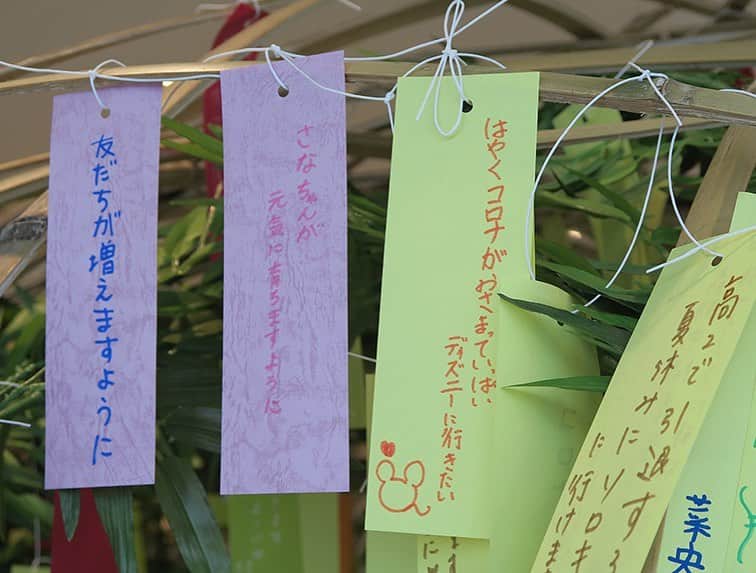 友だちが増えますように
さなちゃんが
元気に育ちますように
はやくコロナがおさまっていっぱい
ディズニーに行きたい
高2で引退する
夏休みにソロキ
に行けま
菜央